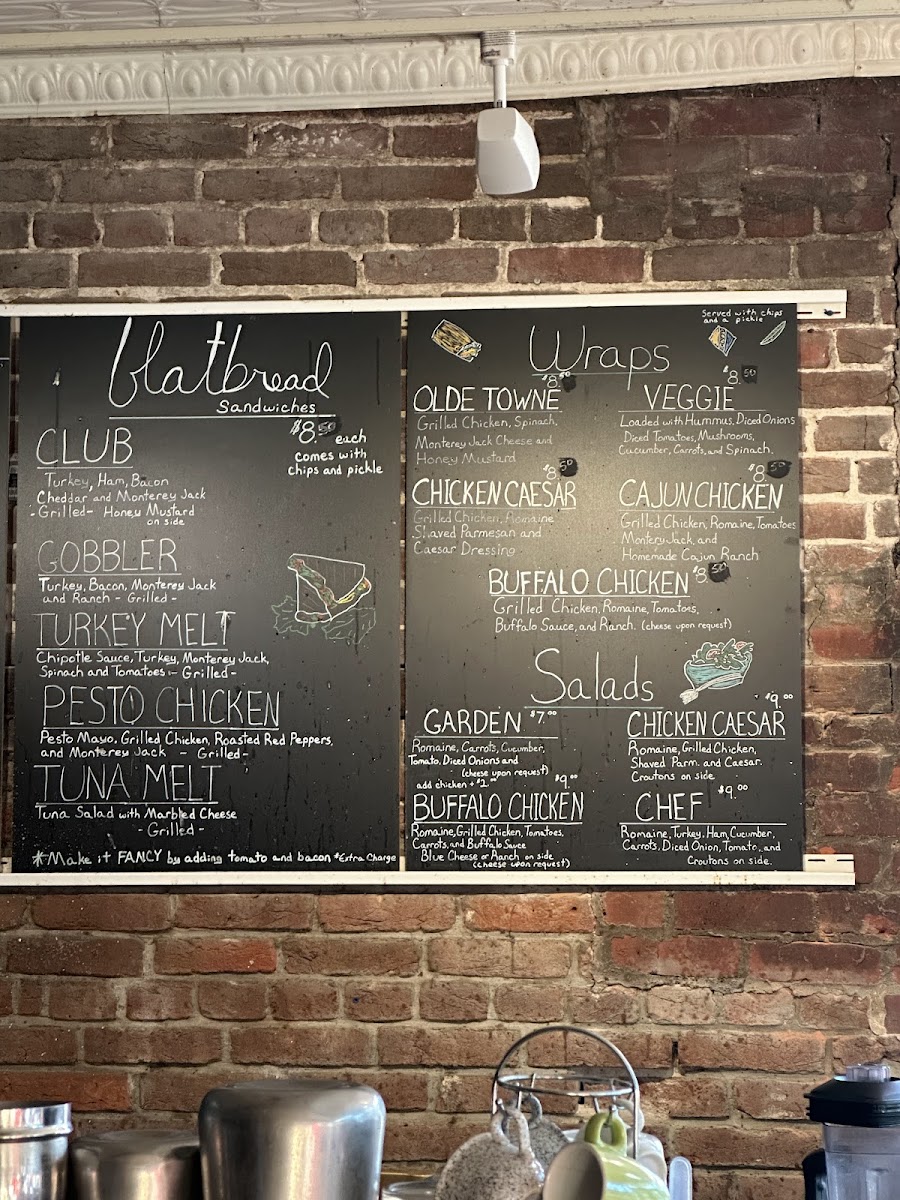 flatbread
Sandwiches
$8.50 each
comes with
chips and pickle
CLUB
Turkey, Ham, Bacon
Cheddar and Monterey Jack
-Grilled- Honey Mustard
on side
GOBBLER
Turkey, Bacon, Monterey Jack
and Ranch - Grilled -
TURKEY MELT
Chipotle Sauce, Turkey, Monterey Jack,
Spinach and Tomatoes - Grilled -
PESTO CHICKEN
Pesto Mayo, Grilled Chicken, Roasted Red Peppers,
and Monterey Jack - Grilled -
TUNA MELT
Tuna Salad with Marbled Cheese
- Grilled -
*Make it FANCY by adding tomato and bacon *Extra Charge
Served with chips
and a pickle
Wraps
$8.50
OLDE TOWNE
Grilled Chicken, Spinach,
Monterey Jack Cheese and
Honey Mustard
$8.50
VEGGIE
Loaded with Hummus, Diced Onions
Diced Tomatoes, Mushrooms,
Cucumber, Carrots, and Spinach.
$8.50
CHICKEN CAESAR
Grilled Chicken, Romaine
Shaved Parmesan and
Caesar Dressing
$8.50
CAJUN CHICKEN
Grilled Chicken, Romaine, Tomatoes
Montery Jack, and
Homemade Cajun Ranch
BUFFALO CHICKEN $8.50
Grilled Chicken, Romaine, Tomatoes,
Buffalo Sauce, and Ranch. (cheese upon request)
Salads
GARDEN $7.00
Romaine, Carrots, Cucumber,
Tomato, Diced Onions and
(cheese upon request)
add chicken +$1
$9.00
CHICKEN CAESAR
Romaine, Grilled Chicken,
Shaved Parm. and Caesar.
Croutons on side
$9.00
BUFFALO CHICKEN
Romaine, Grilled Chicken, Tomatoes,
Carrots, and Buffalo Sauce
Blue Cheese or Ranch on side
(cheese upon request)
$9.00
CHEF
Romaine, Turkey, Ham, Cucumber,
Carrots, Diced Onion, Tomato, and
Croutons on side.